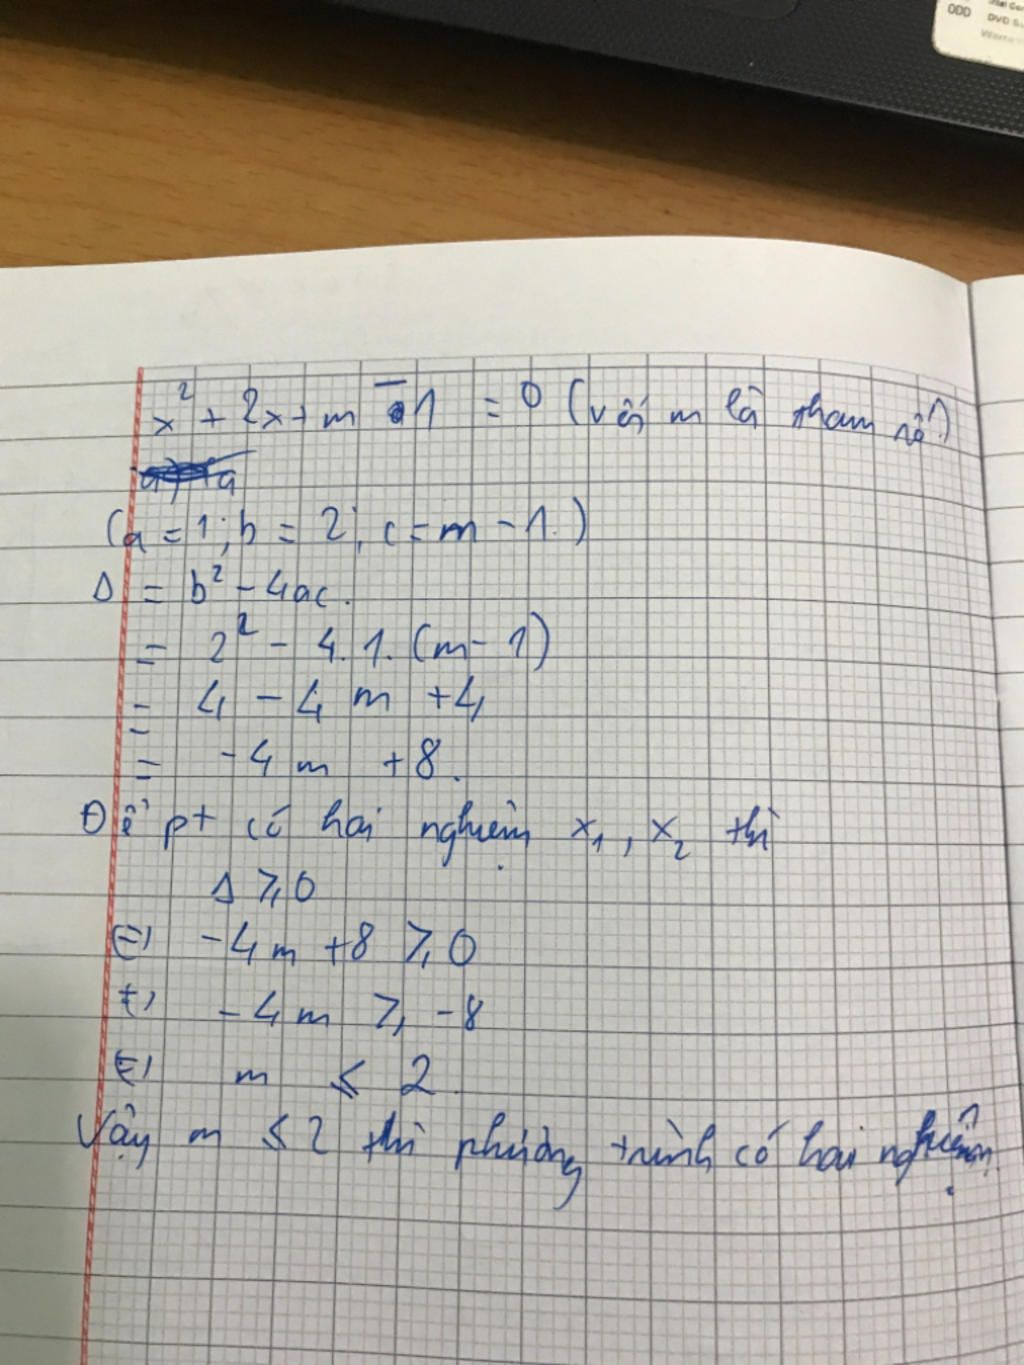 000
DVD Su
x² + 2x + m - 1 = 0 (với m là tham số)
(a = 1; b = 2; c = m - 1.)
Δ = b² - 4ac.
= 2² - 4.1.(m - 1)
= 4 - 4m + 4
= -4m + 8.
Để pt có hai nghiệm x₁, x₂ thì
Δ ⩾ 0
⇔ -4m + 8 ⩾ 0
⇔ -4m ⩾ -8
⇔ m ⩽ 2.
Vậy m ⩽ 2 thì phương trình có hai nghiệm.